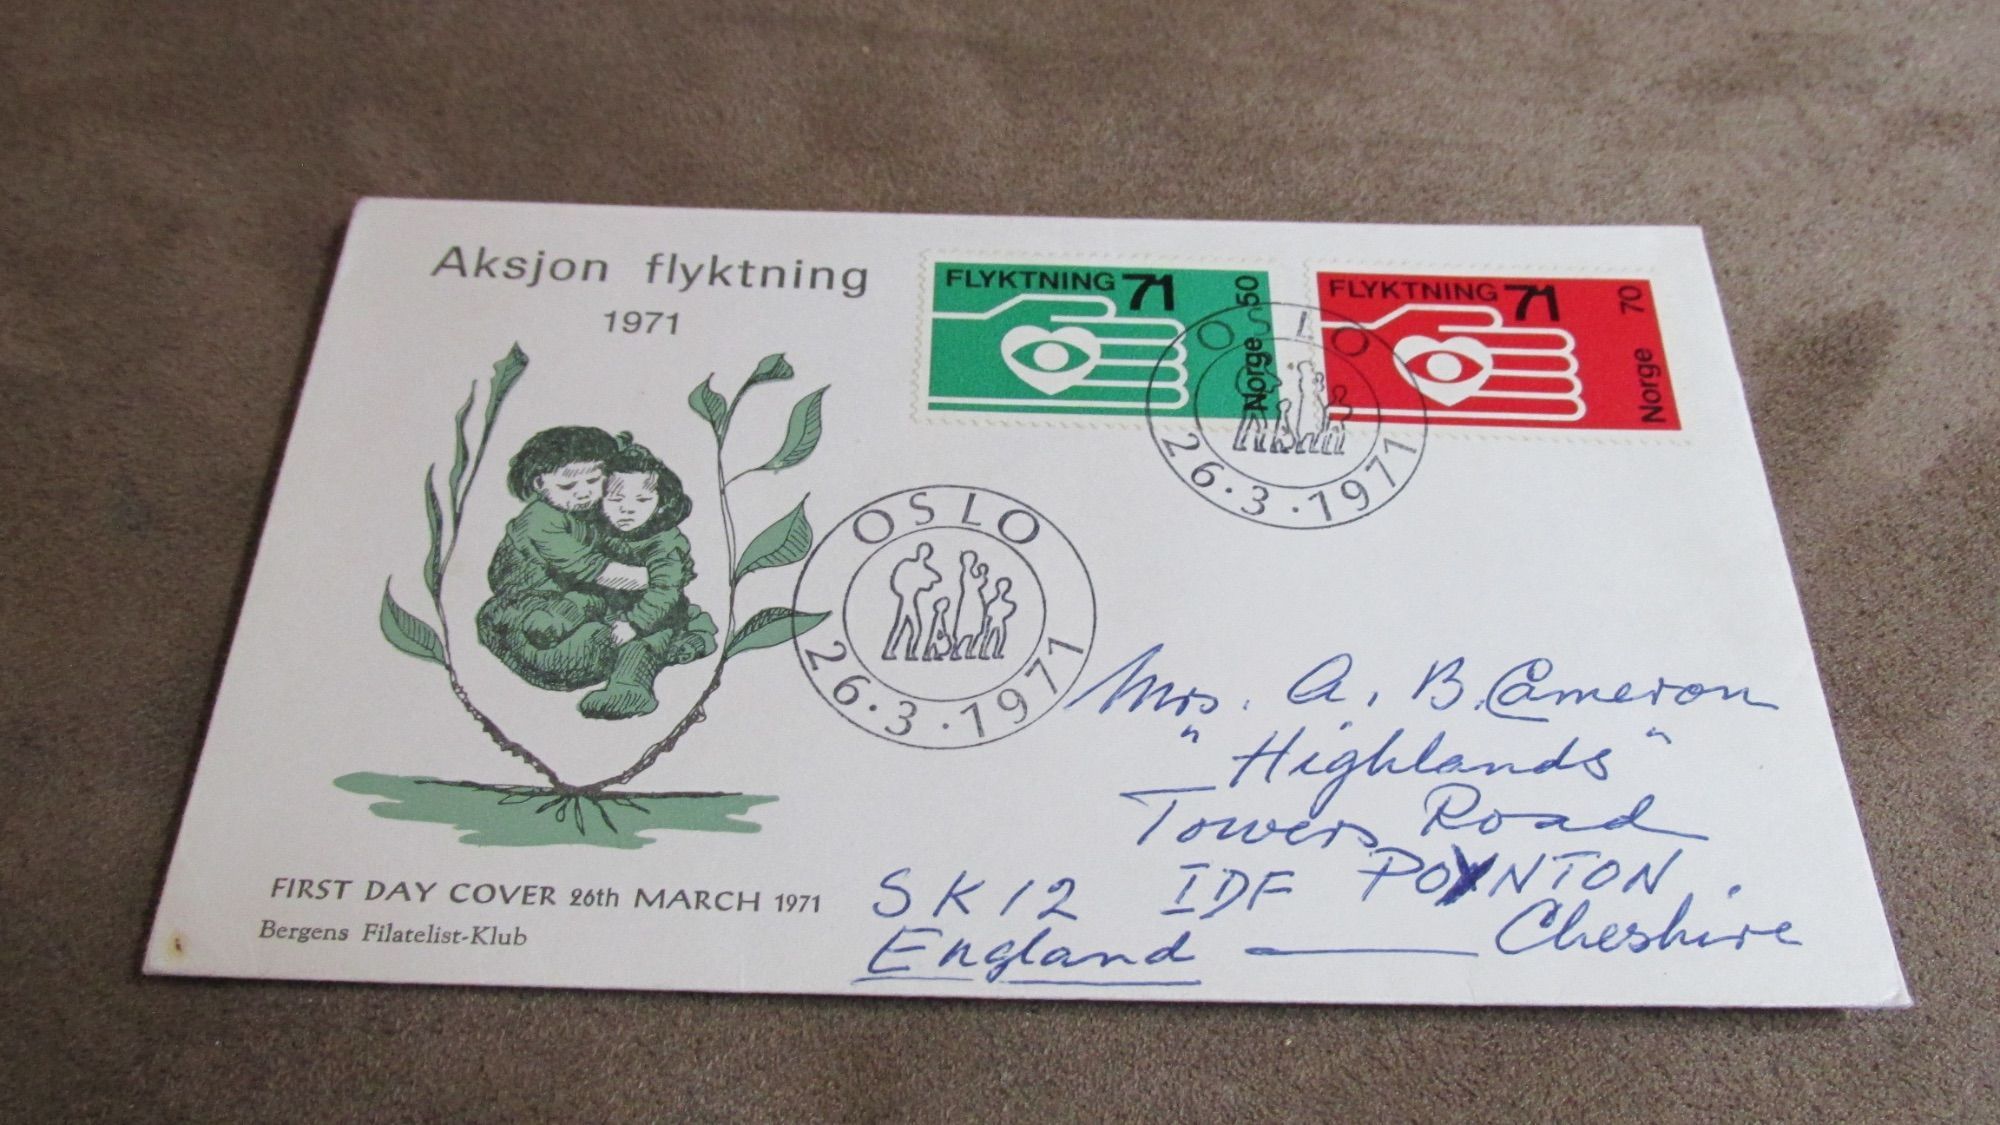 Aksjon flyktning
1971
FLYKTNING 71
50
Norge
FLYKTNING 71
70
Norge
OSLO
26·3·1971
OSLO
26·3·1971
Mrs. A. B. Cameron
"Highlands"
Towers Road
SK12 IDF POYNTON.
England — Cheshire
FIRST DAY COVER 26th MARCH 1971
Bergens Filatelist-Klub